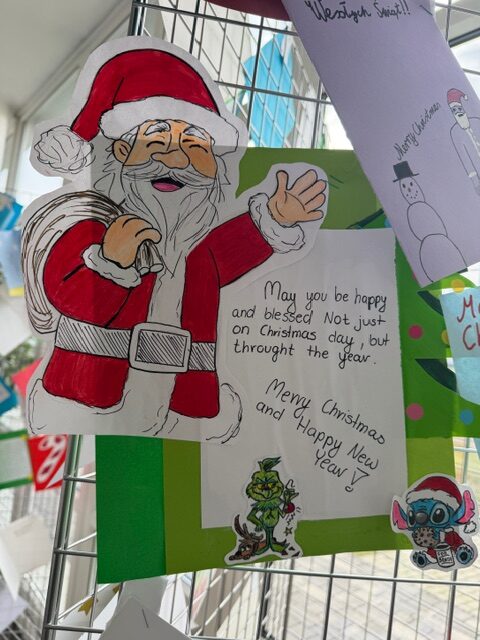 Wesołych Świąt!!
Merry Christmas
May you be happy
and blessed Not just
on Christmas day, but
throught the year.
Merry Christmas
and Happy New
Year!